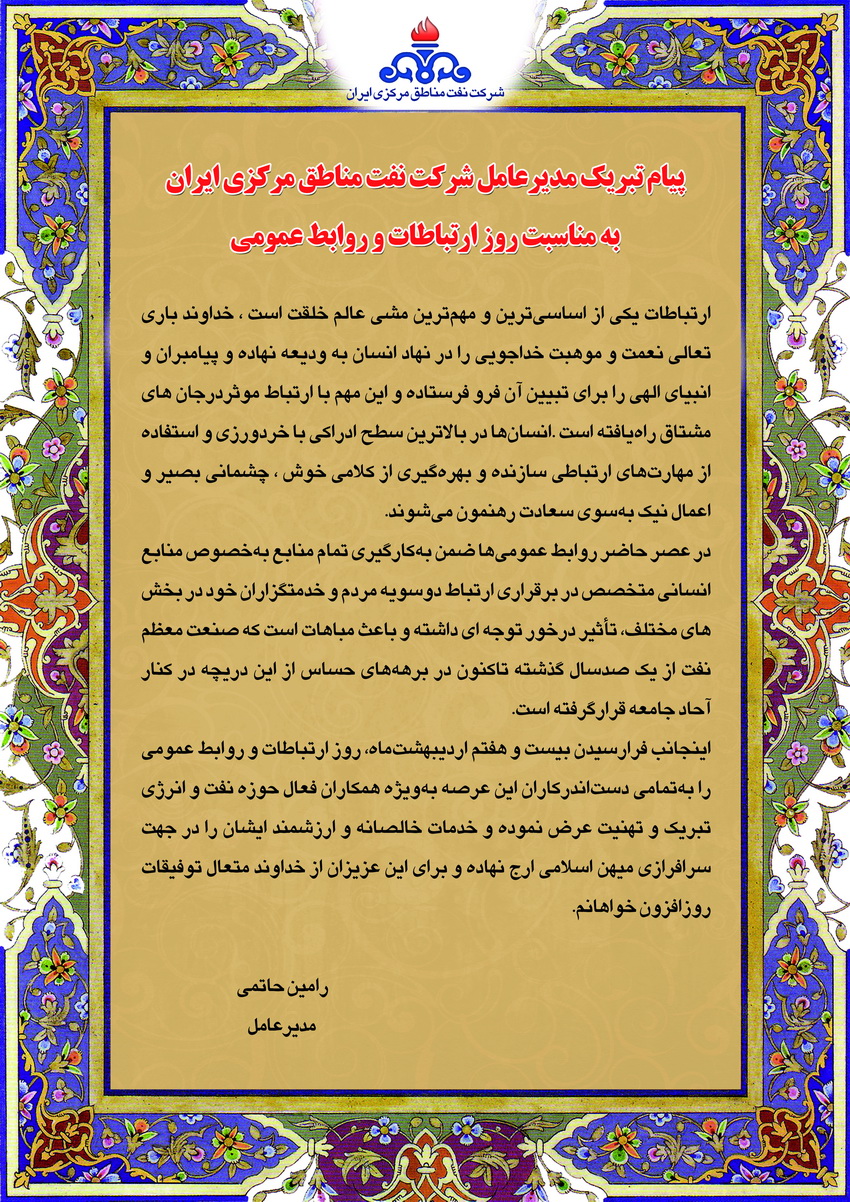 شرکت نفت مناطق مرکزی ایران
پیام تبریک مدیرعامل شرکت نفت مناطق مرکزی ایران
به مناسبت روز ارتباطات و روابط عمومی
ارتباطات یکی از اساسی‌ترین و مهم‌ترین مشی عالم خلقت است ، خداوند باری
تعالی نعمت و موهبت خداجویی را در نهاد انسان به ودیعه نهاده و پیامبران و
انبیای الهی را برای تبیین آن فرو فرستاده و این مهم با ارتباط موثردرجان های
مشتاق راه‌یافته است .انسان‌ها در بالاترین سطح ادراکی با خردورزی و استفاده
از مهارت‌های ارتباطی سازنده و بهره‌گیری از کلامی خوش ، چشمانی بصیر و
اعمال نیک به‌سوی سعادت رهنمون می‌شوند.
در عصر حاضر روابط عمومی‌ها ضمن به‌کارگیری تمام منابع به‌خصوص منابع
انسانی متخصص در برقراری ارتباط دوسویه مردم و خدمتگزاران خود در بخش
های مختلف، تأثیر درخور توجه ای داشته و باعث مباهات است که صنعت معظم
نفت از یک صدسال گذشته تاکنون در برهه‌های حساس از این دریچه در کنار
آحاد جامعه قرارگرفته است.
اینجانب فرارسیدن بیست و هفتم اردیبهشت‌ماه، روز ارتباطات و روابط عمومی
را به‌تمامی دست‌اندرکاران این عرصه به‌ویژه همکاران فعال حوزه نفت و انرژی
تبریک و تهنیت عرض نموده و خدمات خالصانه و ارزشمند ایشان را در جهت
سرافرازی میهن اسلامی ارج نهاده و برای این عزیزان از خداوند متعال توفیقات
روزافزون خواهانم.
رامین حاتمی
مدیرعامل